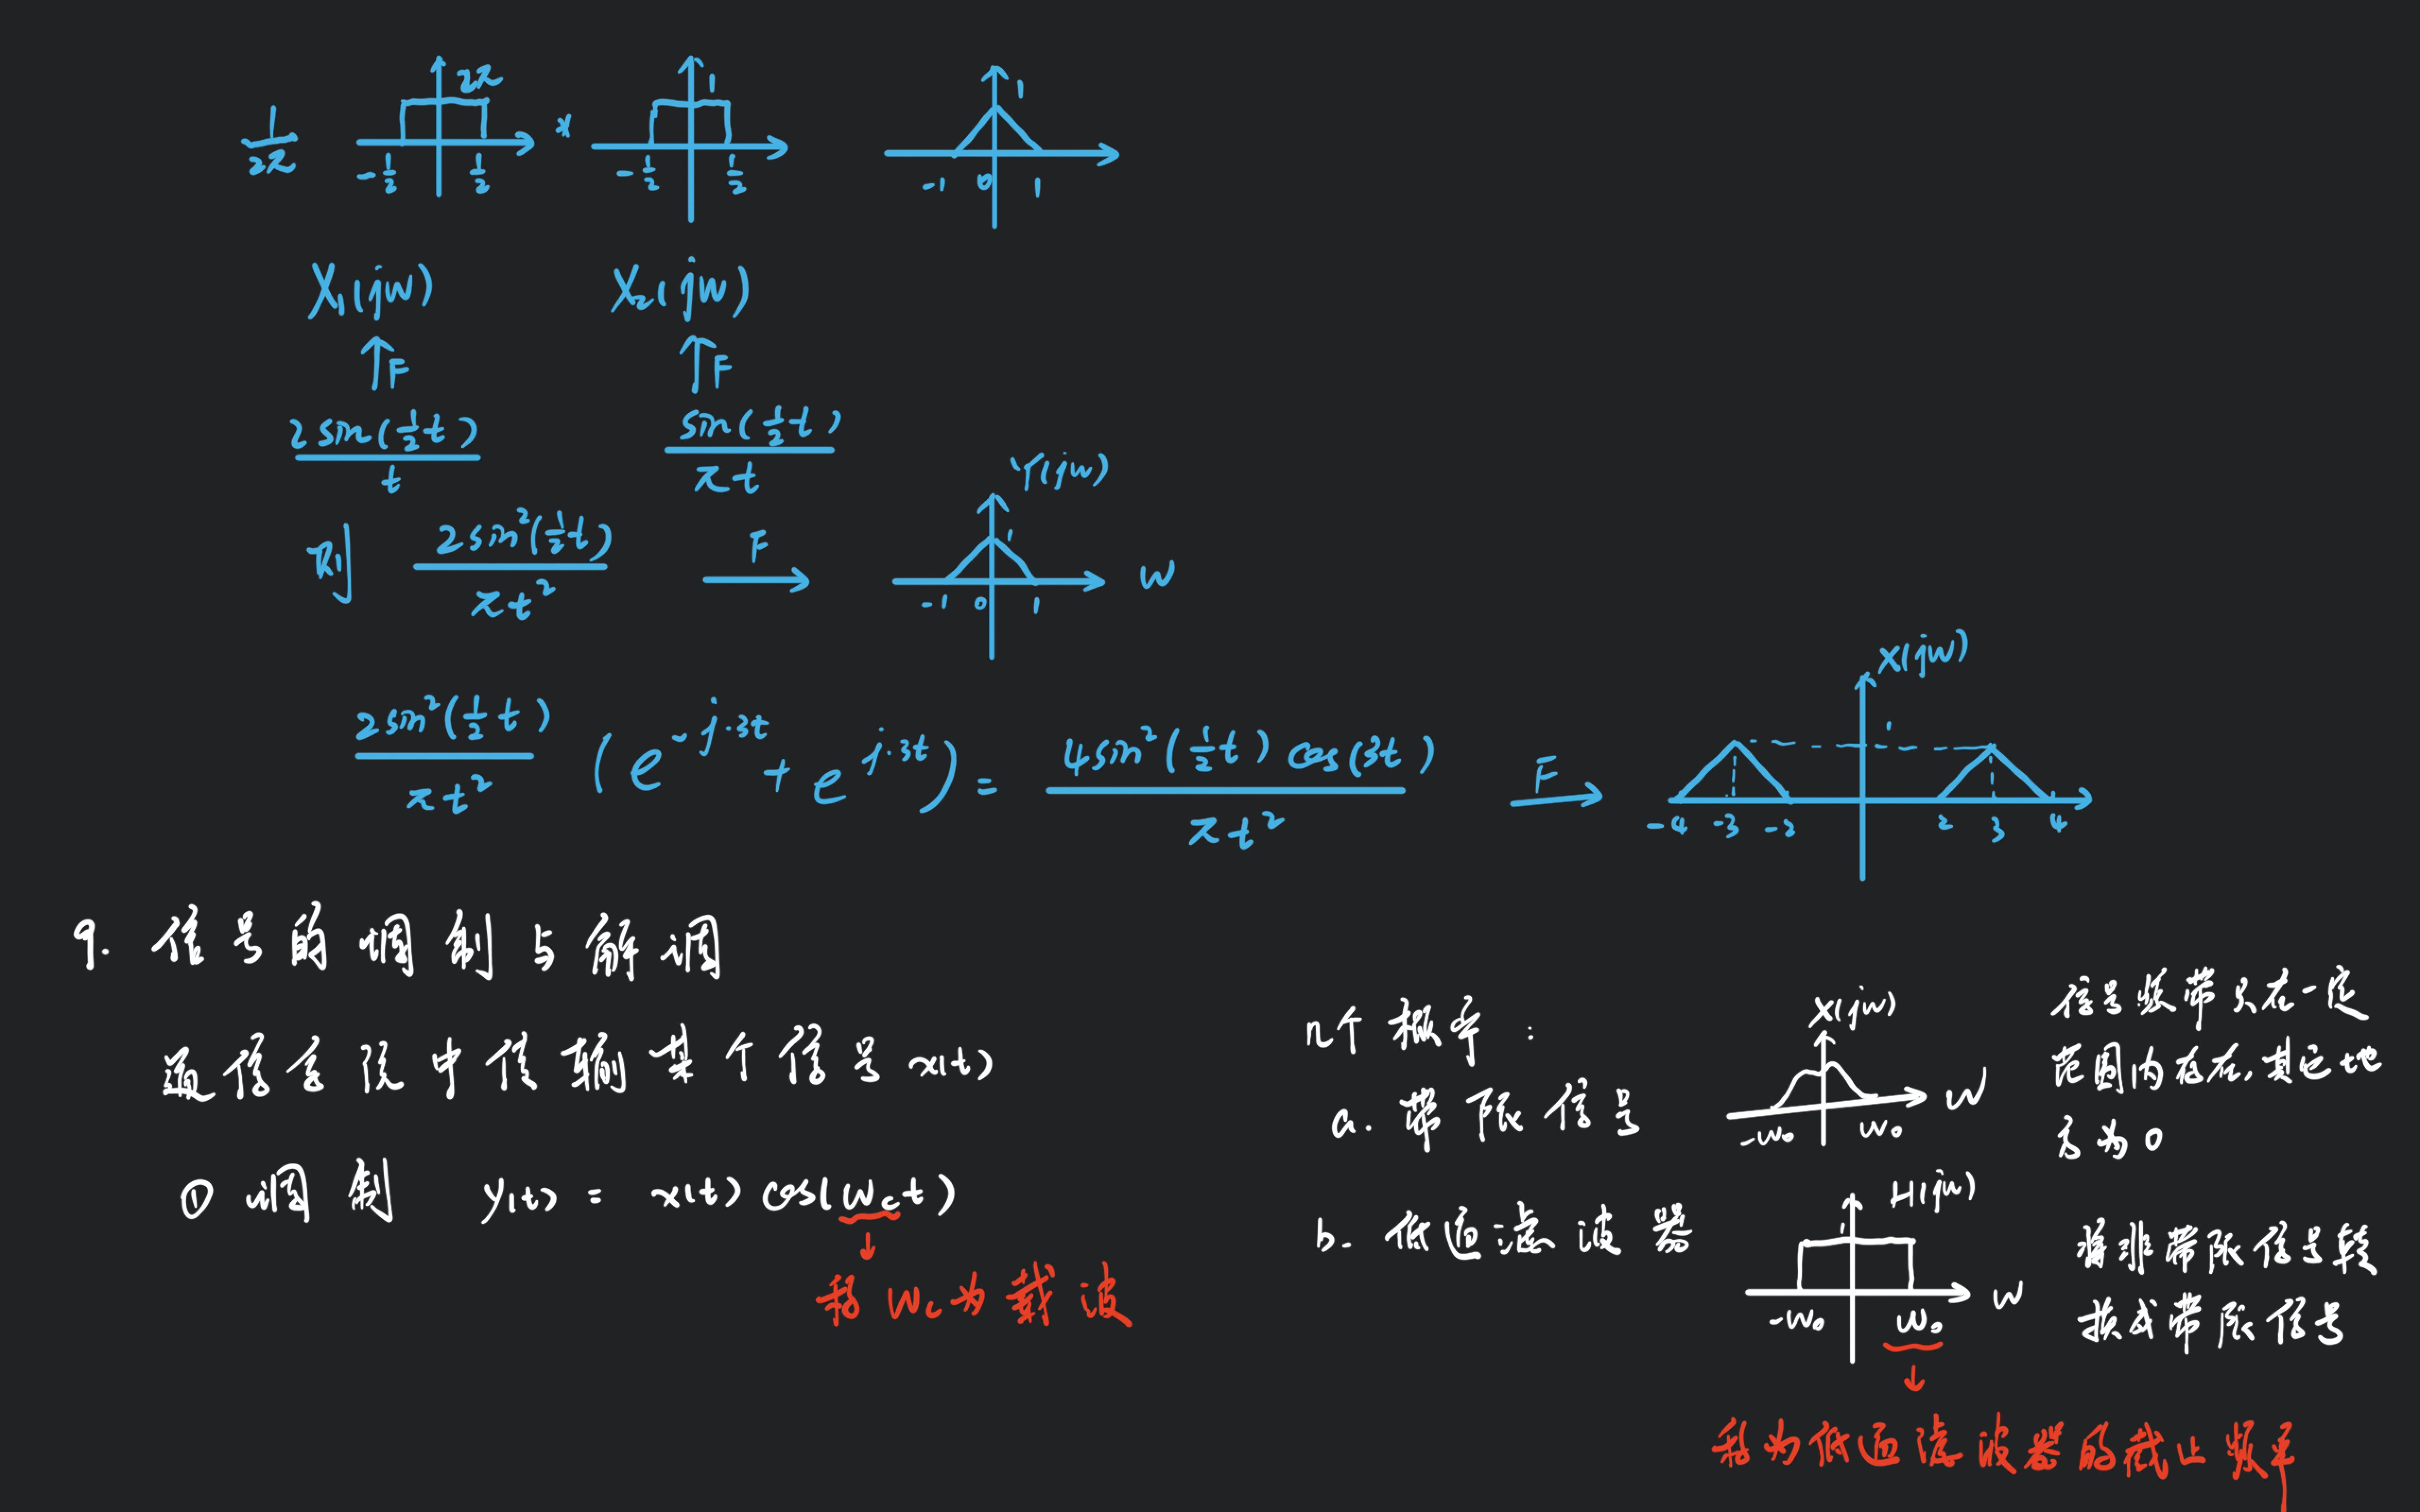 1/2π 2π * 1 1
-1/2 1/2 -1/2 1/2 -1 0 1
X₁(jw) X₂(jw)
↑F ↑F
2sin(1/2 t)/t sin(1/2 t)/πt
Y(jw)
则 2sin²(1/2 t)/πt² F→ 1 w
-1 0 1
X(jw)
2sin²(1/2 t)/πt² (e^-j·3t + e^j·3t) = 4sin²(1/2 t)cos(3t)/πt² F→ 1
-4 -3 -2 2 3 4
9. 信号的调制与解调
通信系统中传输某个信号 x(t)
① 调制 y(t) = x(t) cos(wct)
↓
称 wc为载波
几个概率:
a. 带限信号
X(jw) w
-w₀ w₀
信号频带只在一定
范围内存在,其它地
方为0
b. 低通滤波器
H(jw) 1 w
-w₀ w₀
将非带限信号转
换成带限信号
↓
称为低通滤波器的截止频率